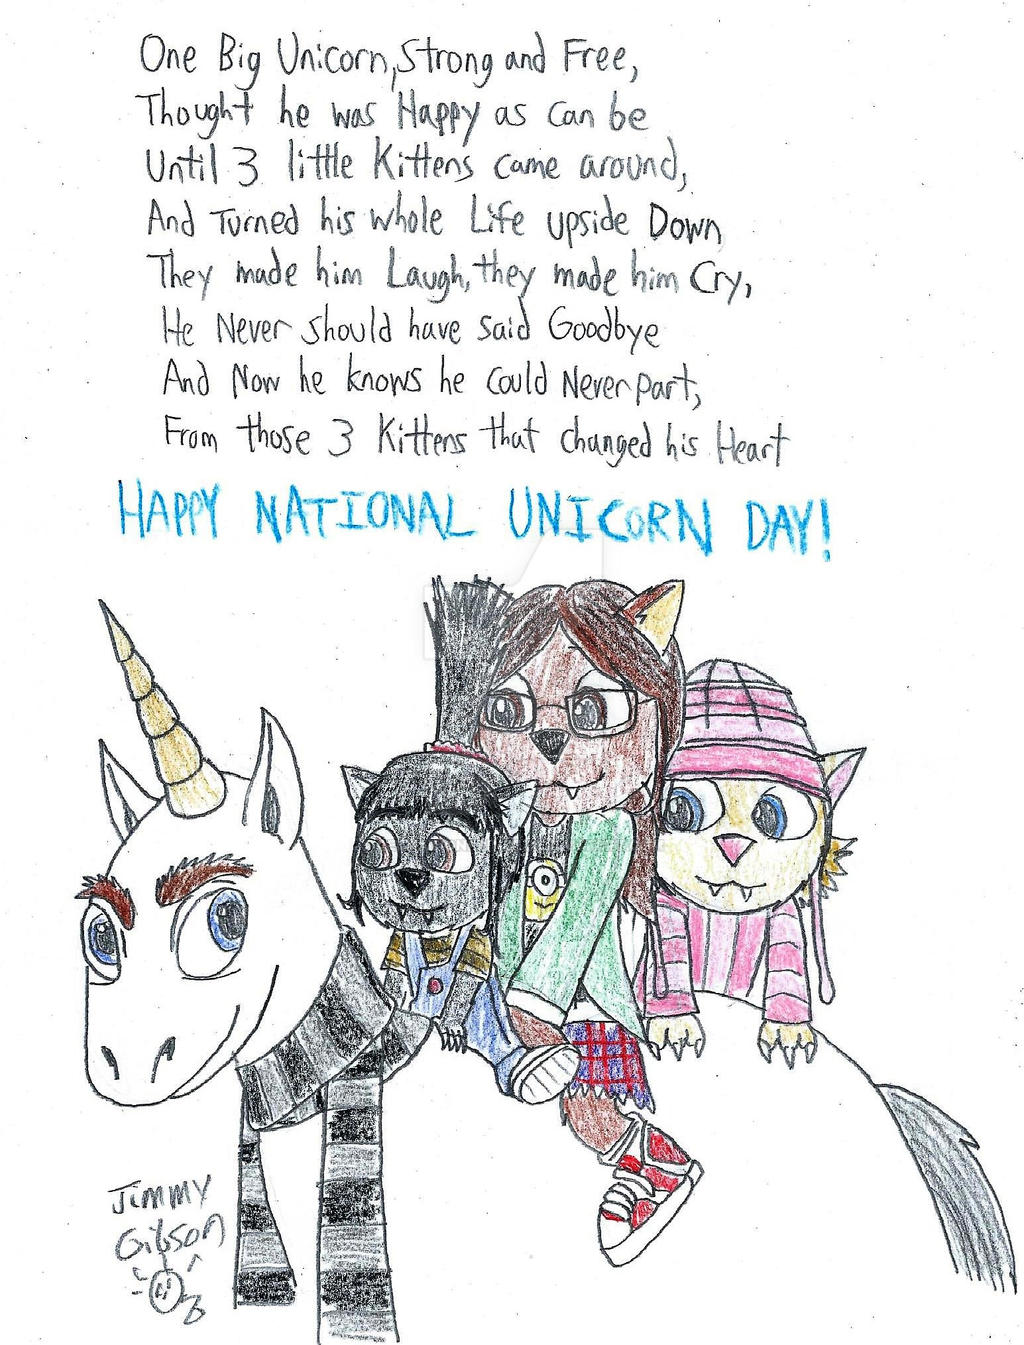 One Big Unicorn, Strong and Free,
Thought he was Happy as can be
Until 3 little Kittens came around,
And Turned his whole Life upside Down
They made him Laugh, they made him Cry,
He Never should have said Goodbye
And Now he knows he could Never part,
From those 3 Kittens that changed his Heart
HAPPY NATIONAL UNICORN DAY!
Jimmy
Gibson